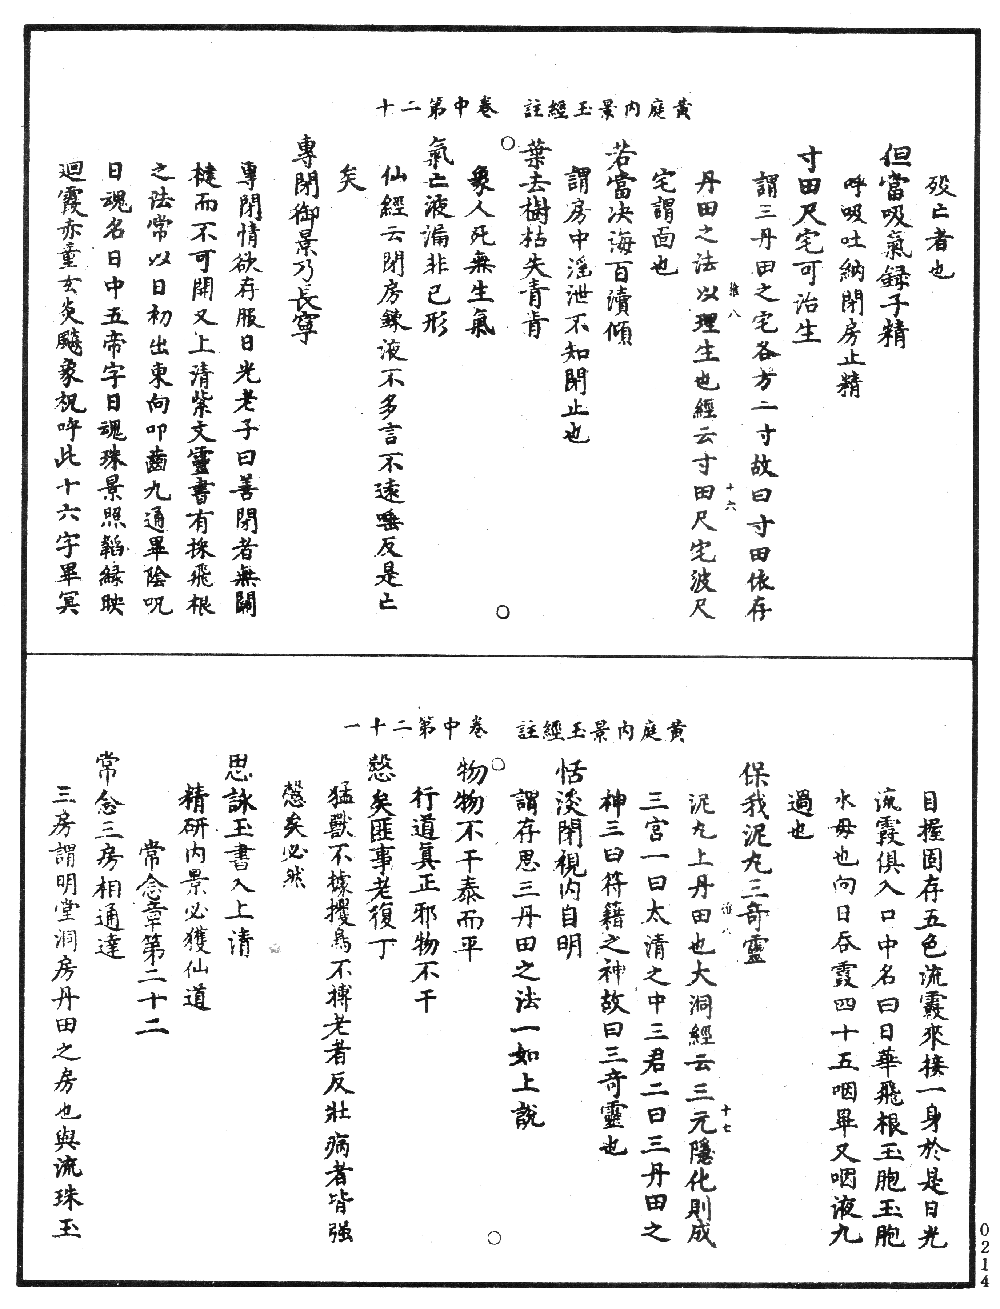 黃庭內景玉經註　卷中第二十
歿亡者也
但當吸氣録子精
呼吸吐納閉房止精
寸田尺宅可治生
謂三丹田之宅各方一寸故曰寸田依存
丹田之法以理生也經云寸田尺宅彼尺
宅謂面也
若當决海百瀆傾
謂房中淫泄不知閉止也
葉去樹枯失青青
象人死無生氣
氣亡液漏非己形
仙經云閉房鍊液不多言不遠唾反是亡
矣
專閉御景乃長寧
專閉情欲存服日光老子曰善閉者無關
楗而不可開又上清紫文靈書有採飛根
之法常以日初出東向叩齒九通畢陰呪
日魂名日中五帝字曰日魂珠景照韜緑映
迴霞赤童玄炎飈象祝呼此十六字畢冥
淮八
十六
黃庭內景玉經註　卷中第二十一
目握固存五色流霞來接一身於是日光
流霞俱入口中名曰日華飛根玉胞玉胞
水母也向日吞霞四十五咽畢又咽液九
過也
保我泥丸三奇靈
泥丸上丹田也大洞經云三元隱化則成
三宮一曰太清之中三君二曰三丹田之
神三曰符籍之神故曰三奇靈也
恬淡閉視內自明
謂存思三丹田之法一如上說
物物不干泰而平
行道真正邪物不干
慤矣匪事老復丁
猛獸不據攫鳥不搏老者反壯病者皆强
慤矣必然
思詠玉書入上清
精研內景必獲仙道
常念章第二十二
常念三房相通達
三房謂明堂洞房丹田之房也與流珠玉
十七
0214